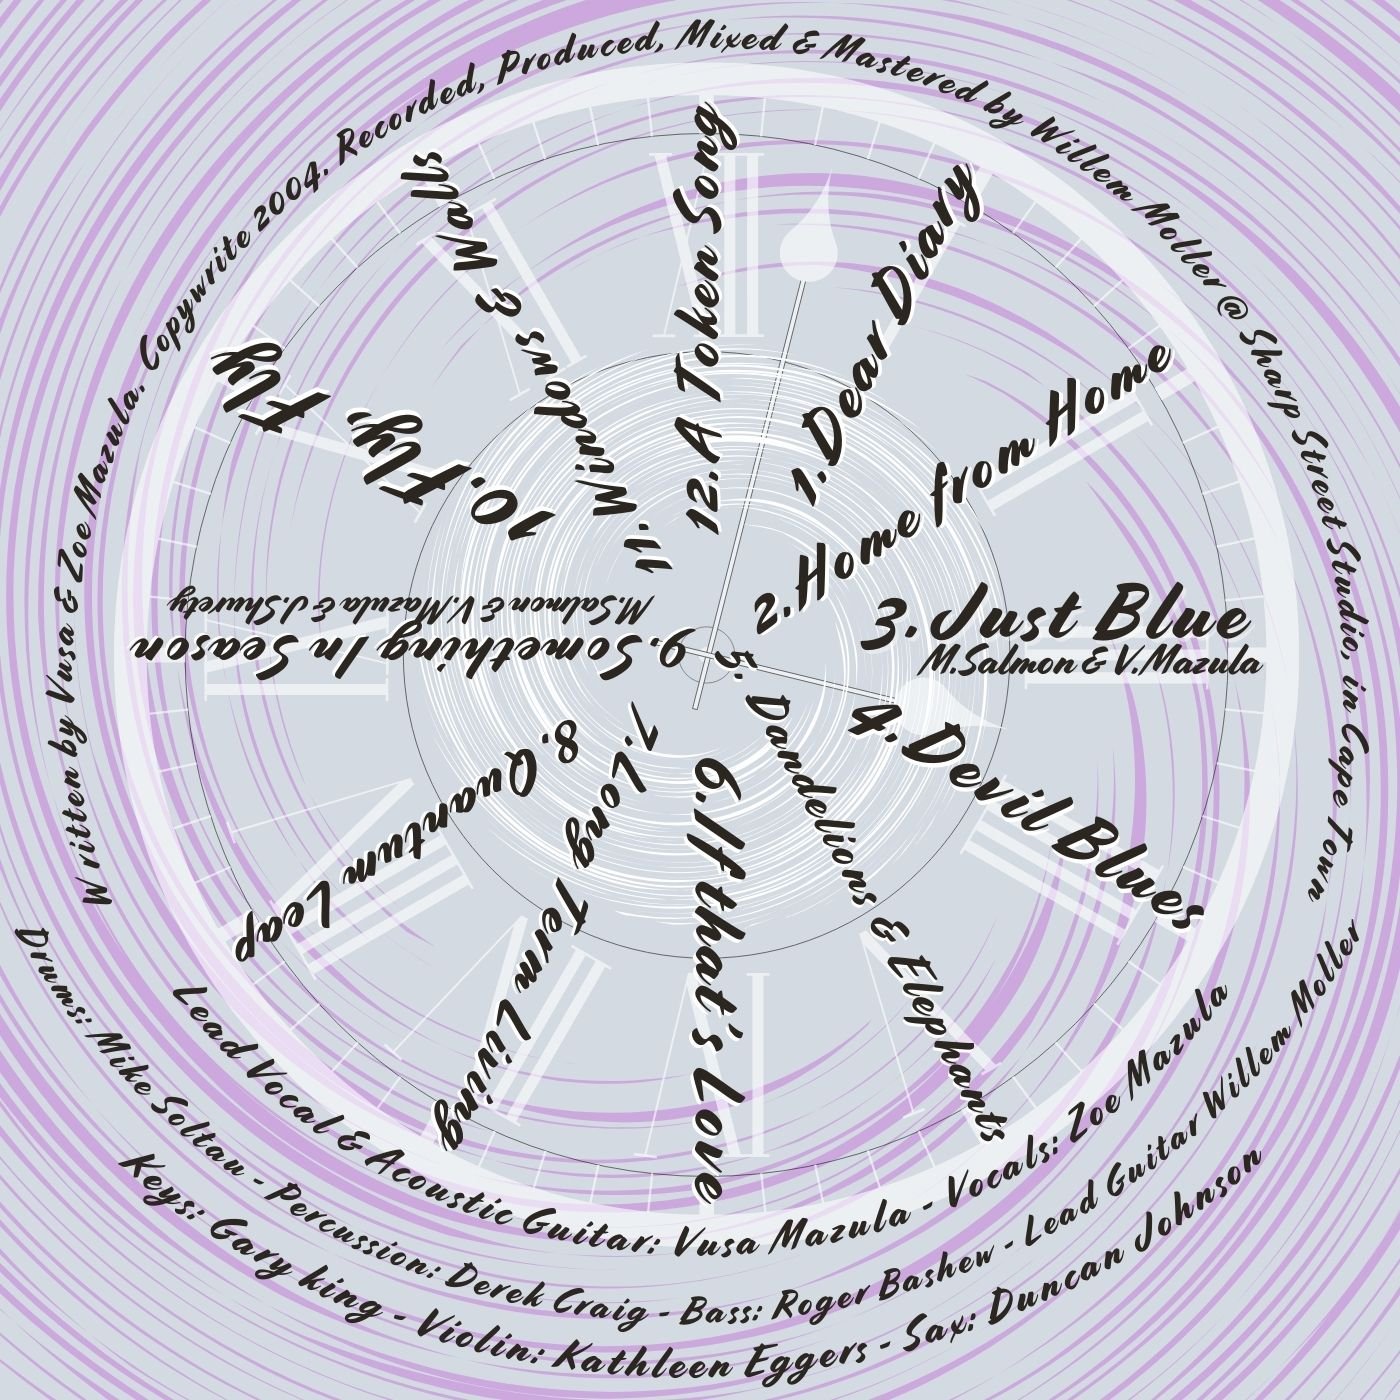 Written by Vusa & Zoe Mazula. Copywrite 2004. Recorded, Produced, Mixed & Mastered by Willem Moller @ Sharp Street Studio, in Cape Town
1. Dear Diary
2. Home from Home
3. Just Blue
M.Salmon & V.Mazula
4. Devil Blues
5. Dandelions & Elephants
6. If that's Love
7. Long Term Living
8. Quantum Leap
9. Something In Season
M.Salmon & V.Mazula & J.Shurety
10. Fly, Fly
11. Windows & Walls
12. A Token Song
Lead Vocal & Acoustic Guitar: Vusa Mazula - Vocals: Zoe Mazula
Drums: Mike Soltau - Percussion: Derek Craig - Bass: Roger Bashew - Lead Guitar Willem Moller
Keys: Gary king - Violin: Kathleen Eggers - Sax: Duncan Johnson